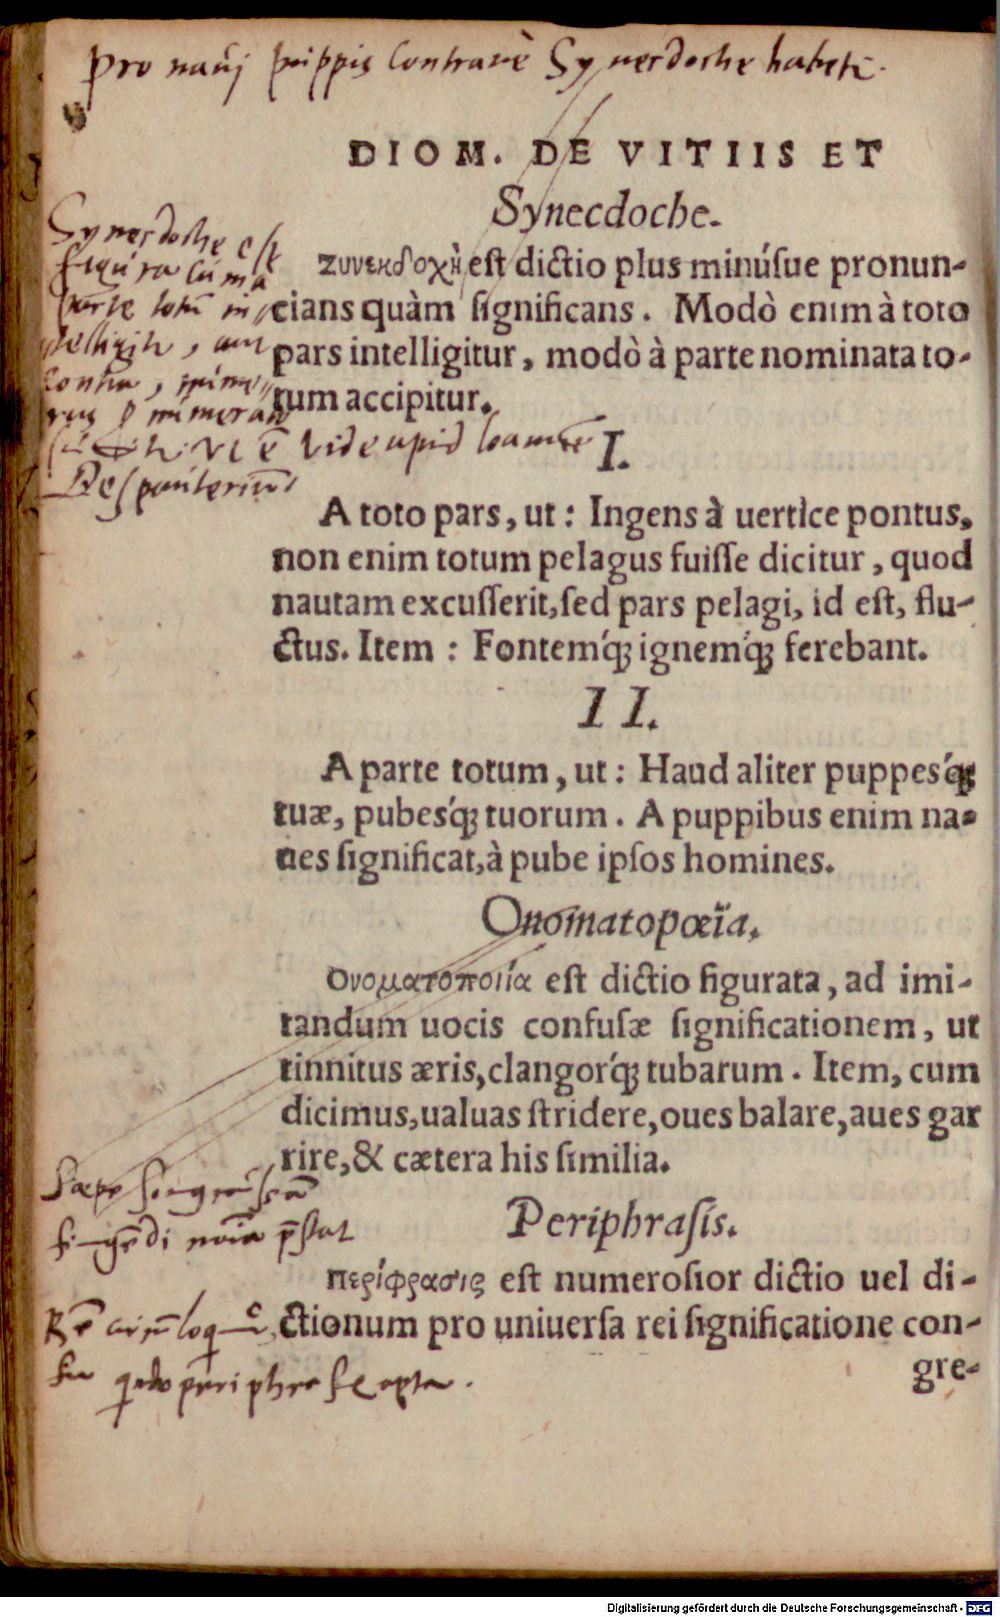 Pro navi puppis contrave Synecdoche habet.
DIOM. DE VITIIS ET
Synecdoche.
Synecdoche est
figura cum a
parte totū in-
telligitur, aut
contra,
Ζυνεκδοχὴ est dictio plus minúsue pronun-
cians quàm significans. Modò enim à toto
pars intelligitur, modò à parte nominata to-
tum accipitur.
vt ē vide apud Ioannē
Despauteriū
I.
A toto pars, ut: Ingens à uertice pontus,
non enim totum pelagus fuisse dicitur, quod
nautam excusserit, sed pars pelagi, id est, flu-
ctus. Item: Fontemq́ꝫ ignemq́ꝫ ferebant.
II.
A parte totum, ut: Haud aliter puppesq́ꝫ
tuæ, pubesq́ꝫ tuorum. A puppibus enim na-
ues significat, à pube ipsos homines.
Onomatopœïa.
Ονοματοποιΐα est dictio figurata, ad imi-
tandum uocis confusæ significationem, ut
tinnitus æris, clangorq́ꝫ tubarum. Item, cum
dicimus, ualuas stridere, oues balare, aues gar
rire, & cætera his similia.
Sæpe
fingēdi
Periphrasis.
Περίφρασις est numerosior dictio uel di-
Rē
ctionum pro uniuersa rei significatione con-
periphrasi apta.
gre-
Digitalisierung gefördert durch die Deutsche Forschungsgemeinschaft - DFG